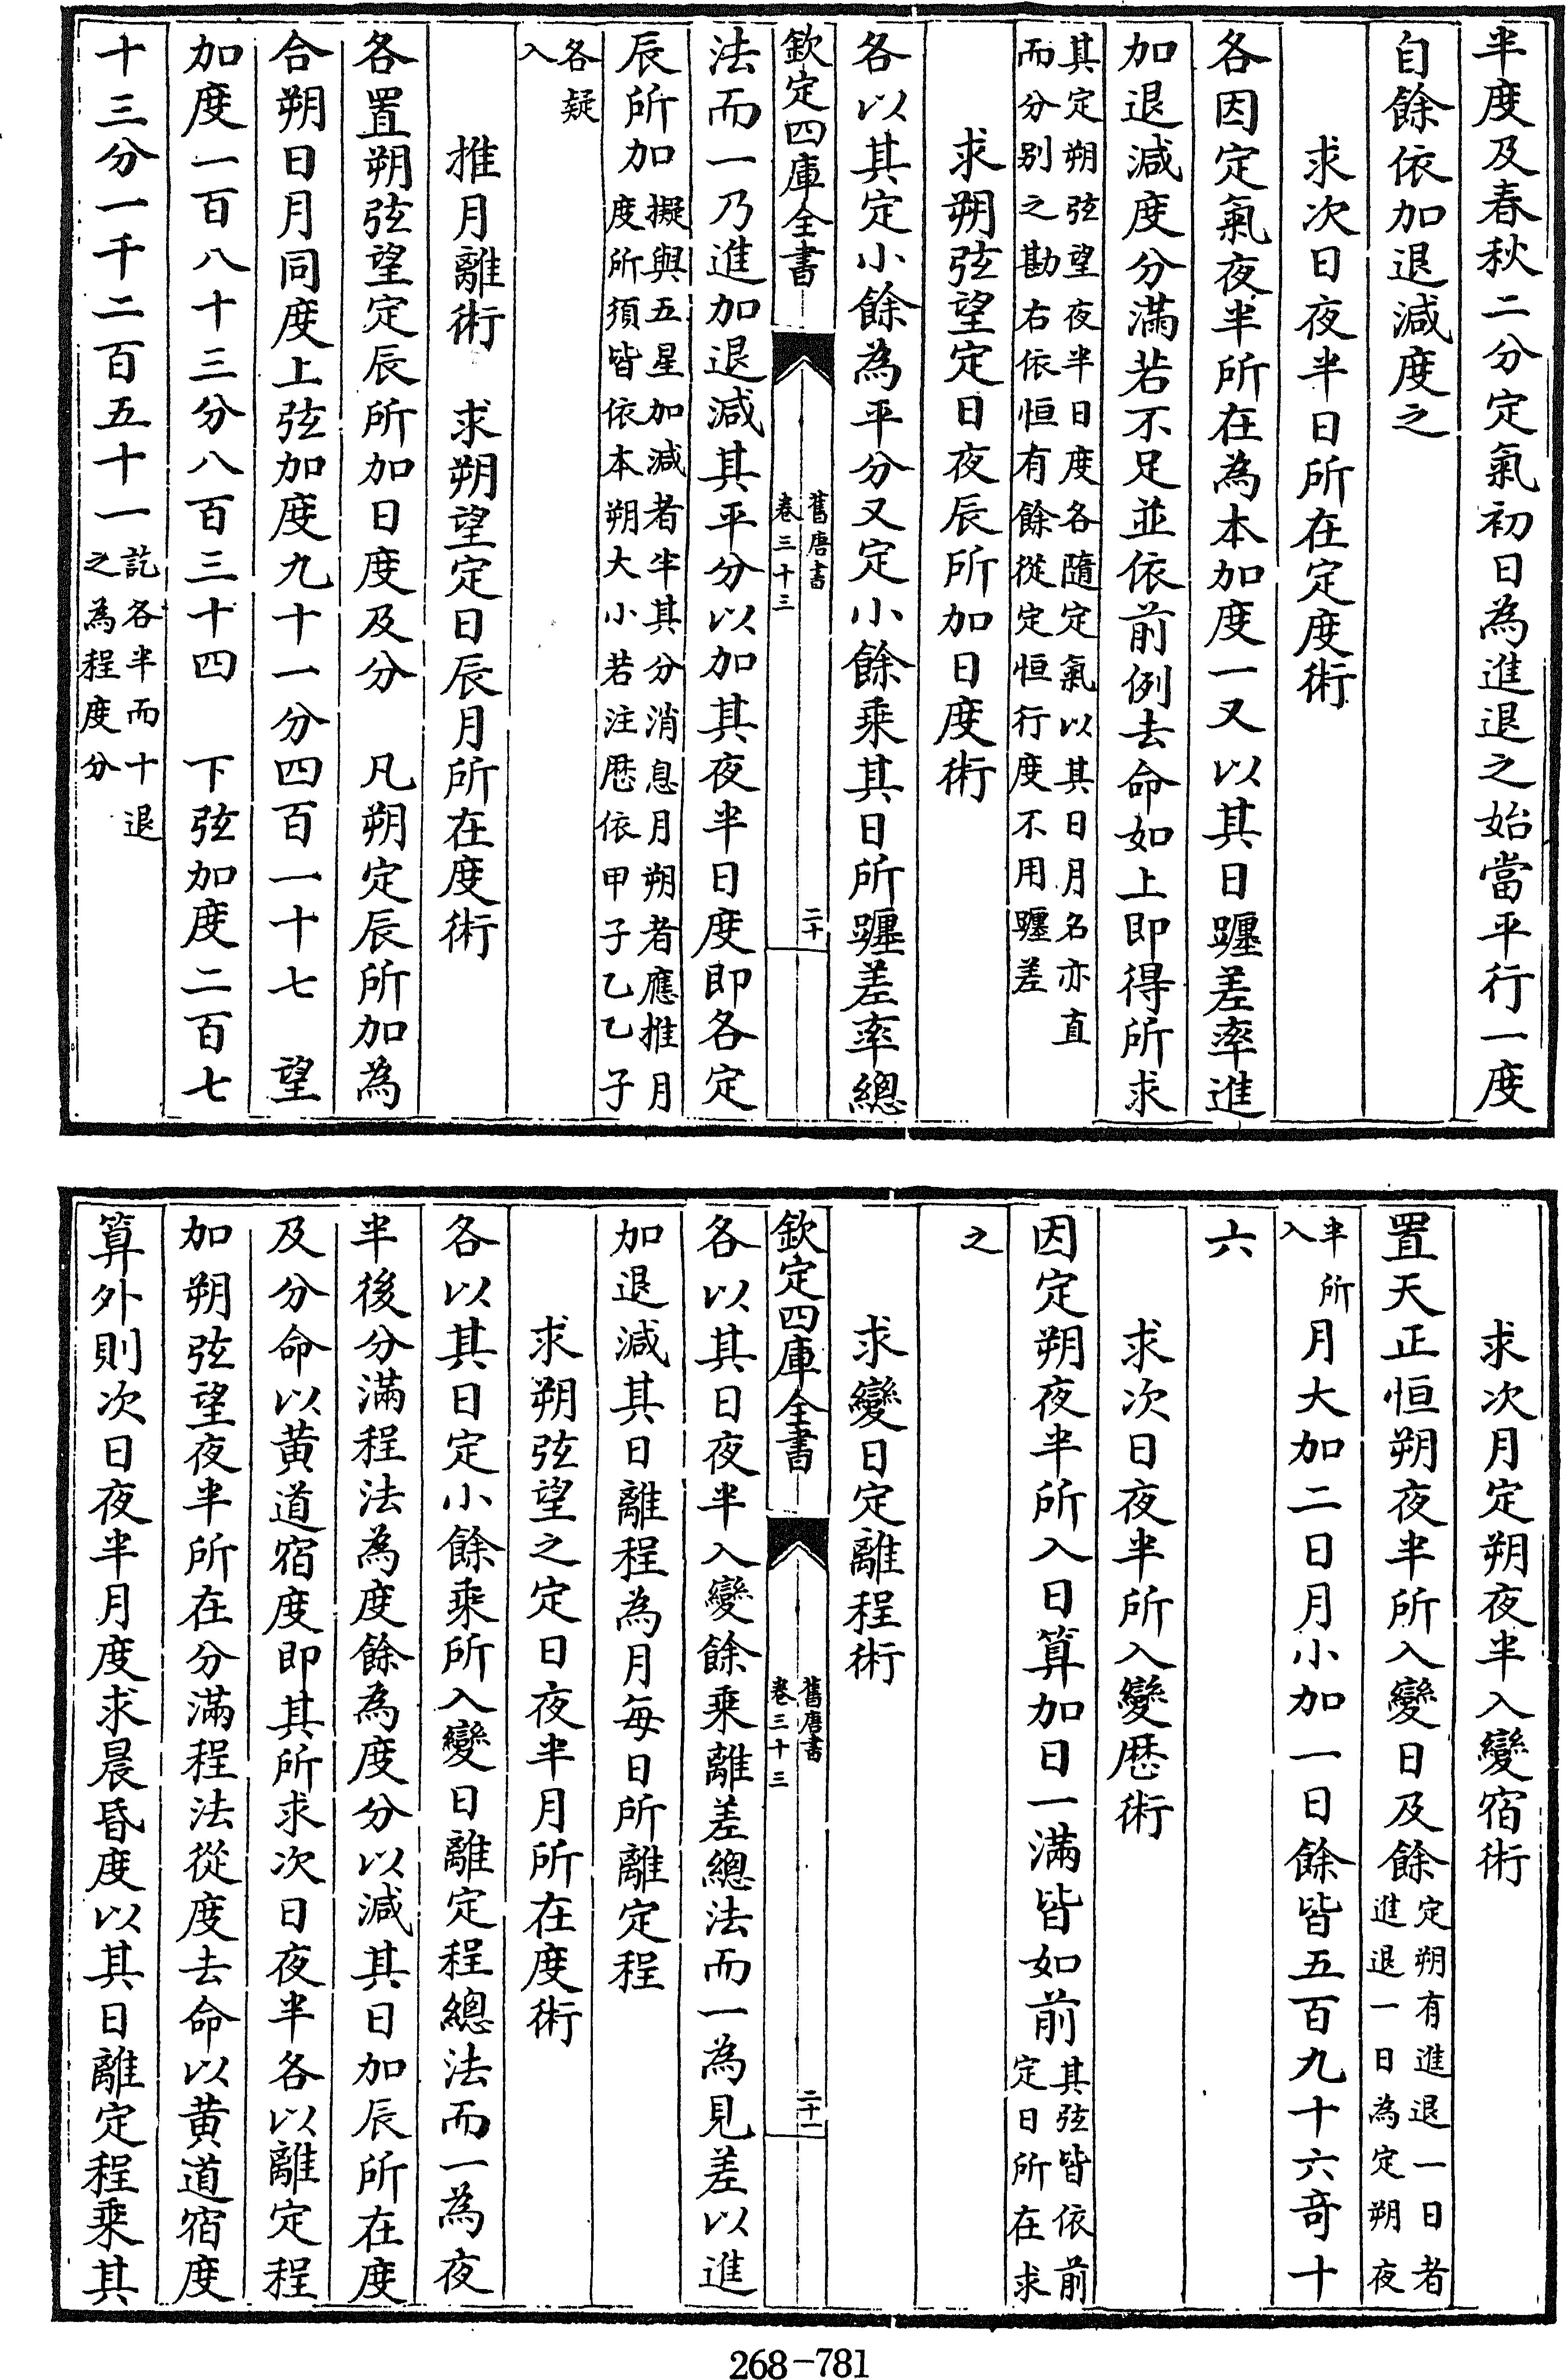 半度及春秋二分定氣初日為進退之始當平行一度
自餘依加退減度之
求次日夜半日所在定度術
各因定氣夜半所在為本加度一又以其日躔差率進
加退減度分滿若不足並依前例去命如上即得所求
其定朔弦望夜半日度各隨定氣以其日月名亦直
而分别之勘右依恒有餘從定恒行度不用躔差
求朔弦望定日夜辰所加日度術
各以其定小餘為平分又定小餘乘其日所躔差率總
欽定四庫全書
舊唐書
卷三十三
二十
法而一乃進加退減其平分以加其夜半日度即各定
辰所加擬與五星加減者半其分消息月朔者應推月
度所須皆依本朔大小若注厯依甲子乙乙子
各疑
入
推月離術 求朔望定日辰月所在度術
各置朔弦望定辰所加日度及分 凡朔定辰所加為
合朔日月同度上弦加度九十一分四百一十七 望
加度一百八十三分八百三十四 下弦加度二百七
十三分一千二百五十一訖各半而十退
之為程度分
求次月定朔夜半入變宿術
置天正恒朔夜半所入變日及餘定朔有進退一日者
進退一日為定朔夜
半所
入月大加二日月小加一日餘皆五百九十六竒十
六
求次日夜半所入變厯術
因定朔夜半所入日算加日一滿皆如前其弦皆依前
定日所在求
之
求變日定離程術
欽定四庫全書
舊唐書
卷三十三
二十一
各以其日夜半入變餘乘離差總法而一為見差以進
加退減其日離程為月每日所離定程
求朔弦望之定日夜半月所在度術
各以其日定小餘乘所入變日離定程總法而一為夜
半後分滿程法為度餘為度分以減其日加辰所在度
及分命以黄道宿度即其所求次日夜半各以離定程
加朔弦望夜半所在分滿程法從度去命以黄道宿度
算外則次日夜半月度求晨昏度以其日離定程乘其
268-781